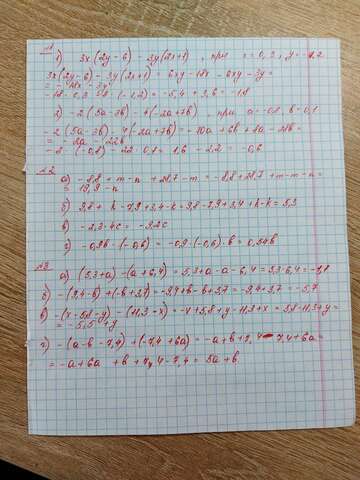 №1
1) 3x(2y-6) - 3y(2x+1), при x=0,3, y=-1,2
3x(2y-6)-3y(2x+1) = 6xy-18x-6xy-3y=
= -18x-3y
-18·0,3-3·(-1,2) = -5,4+3,6 = -1,8
2) -2(5a-3b)-4(-2a+7b), при a=-0,8, b=0,1
-2(5a-3b)-4(-2a+7b) = -10a+6b+8a-28b=
= -2a-22b
-2·(-0,8)-22·0,1 = 1,6-2,2 = -0,6
№2
а) -8,8+m-n+28,7-m = -8,8+28,7+m-m-n=
= 19,9-n
б)
в) -2,3·4c = -9,2c
г) -0,9b·(-0,6) = -0,9·(-0,6)·b = 0,54b
№3
а) (5,3+a)-(a+6,4) = 5,3+a-a-6,4 = 5,3-6,4=-1,1
б) -(9,4-b)+(-b+3,7) = -9,4+b-b+3,7 = -9,4+3,7 = -5,7
в) -(x-5,8-y)-(11,3-x) = -x+5,8+y-11,3+x = 5,8-11,3+y=
= -5,5+y
г) -(a-b-7,4)+(-7,4+6a) = -a+b+7,4-7,4+6a=
= -a+6a+b+7,4-7,4 = 5a+b